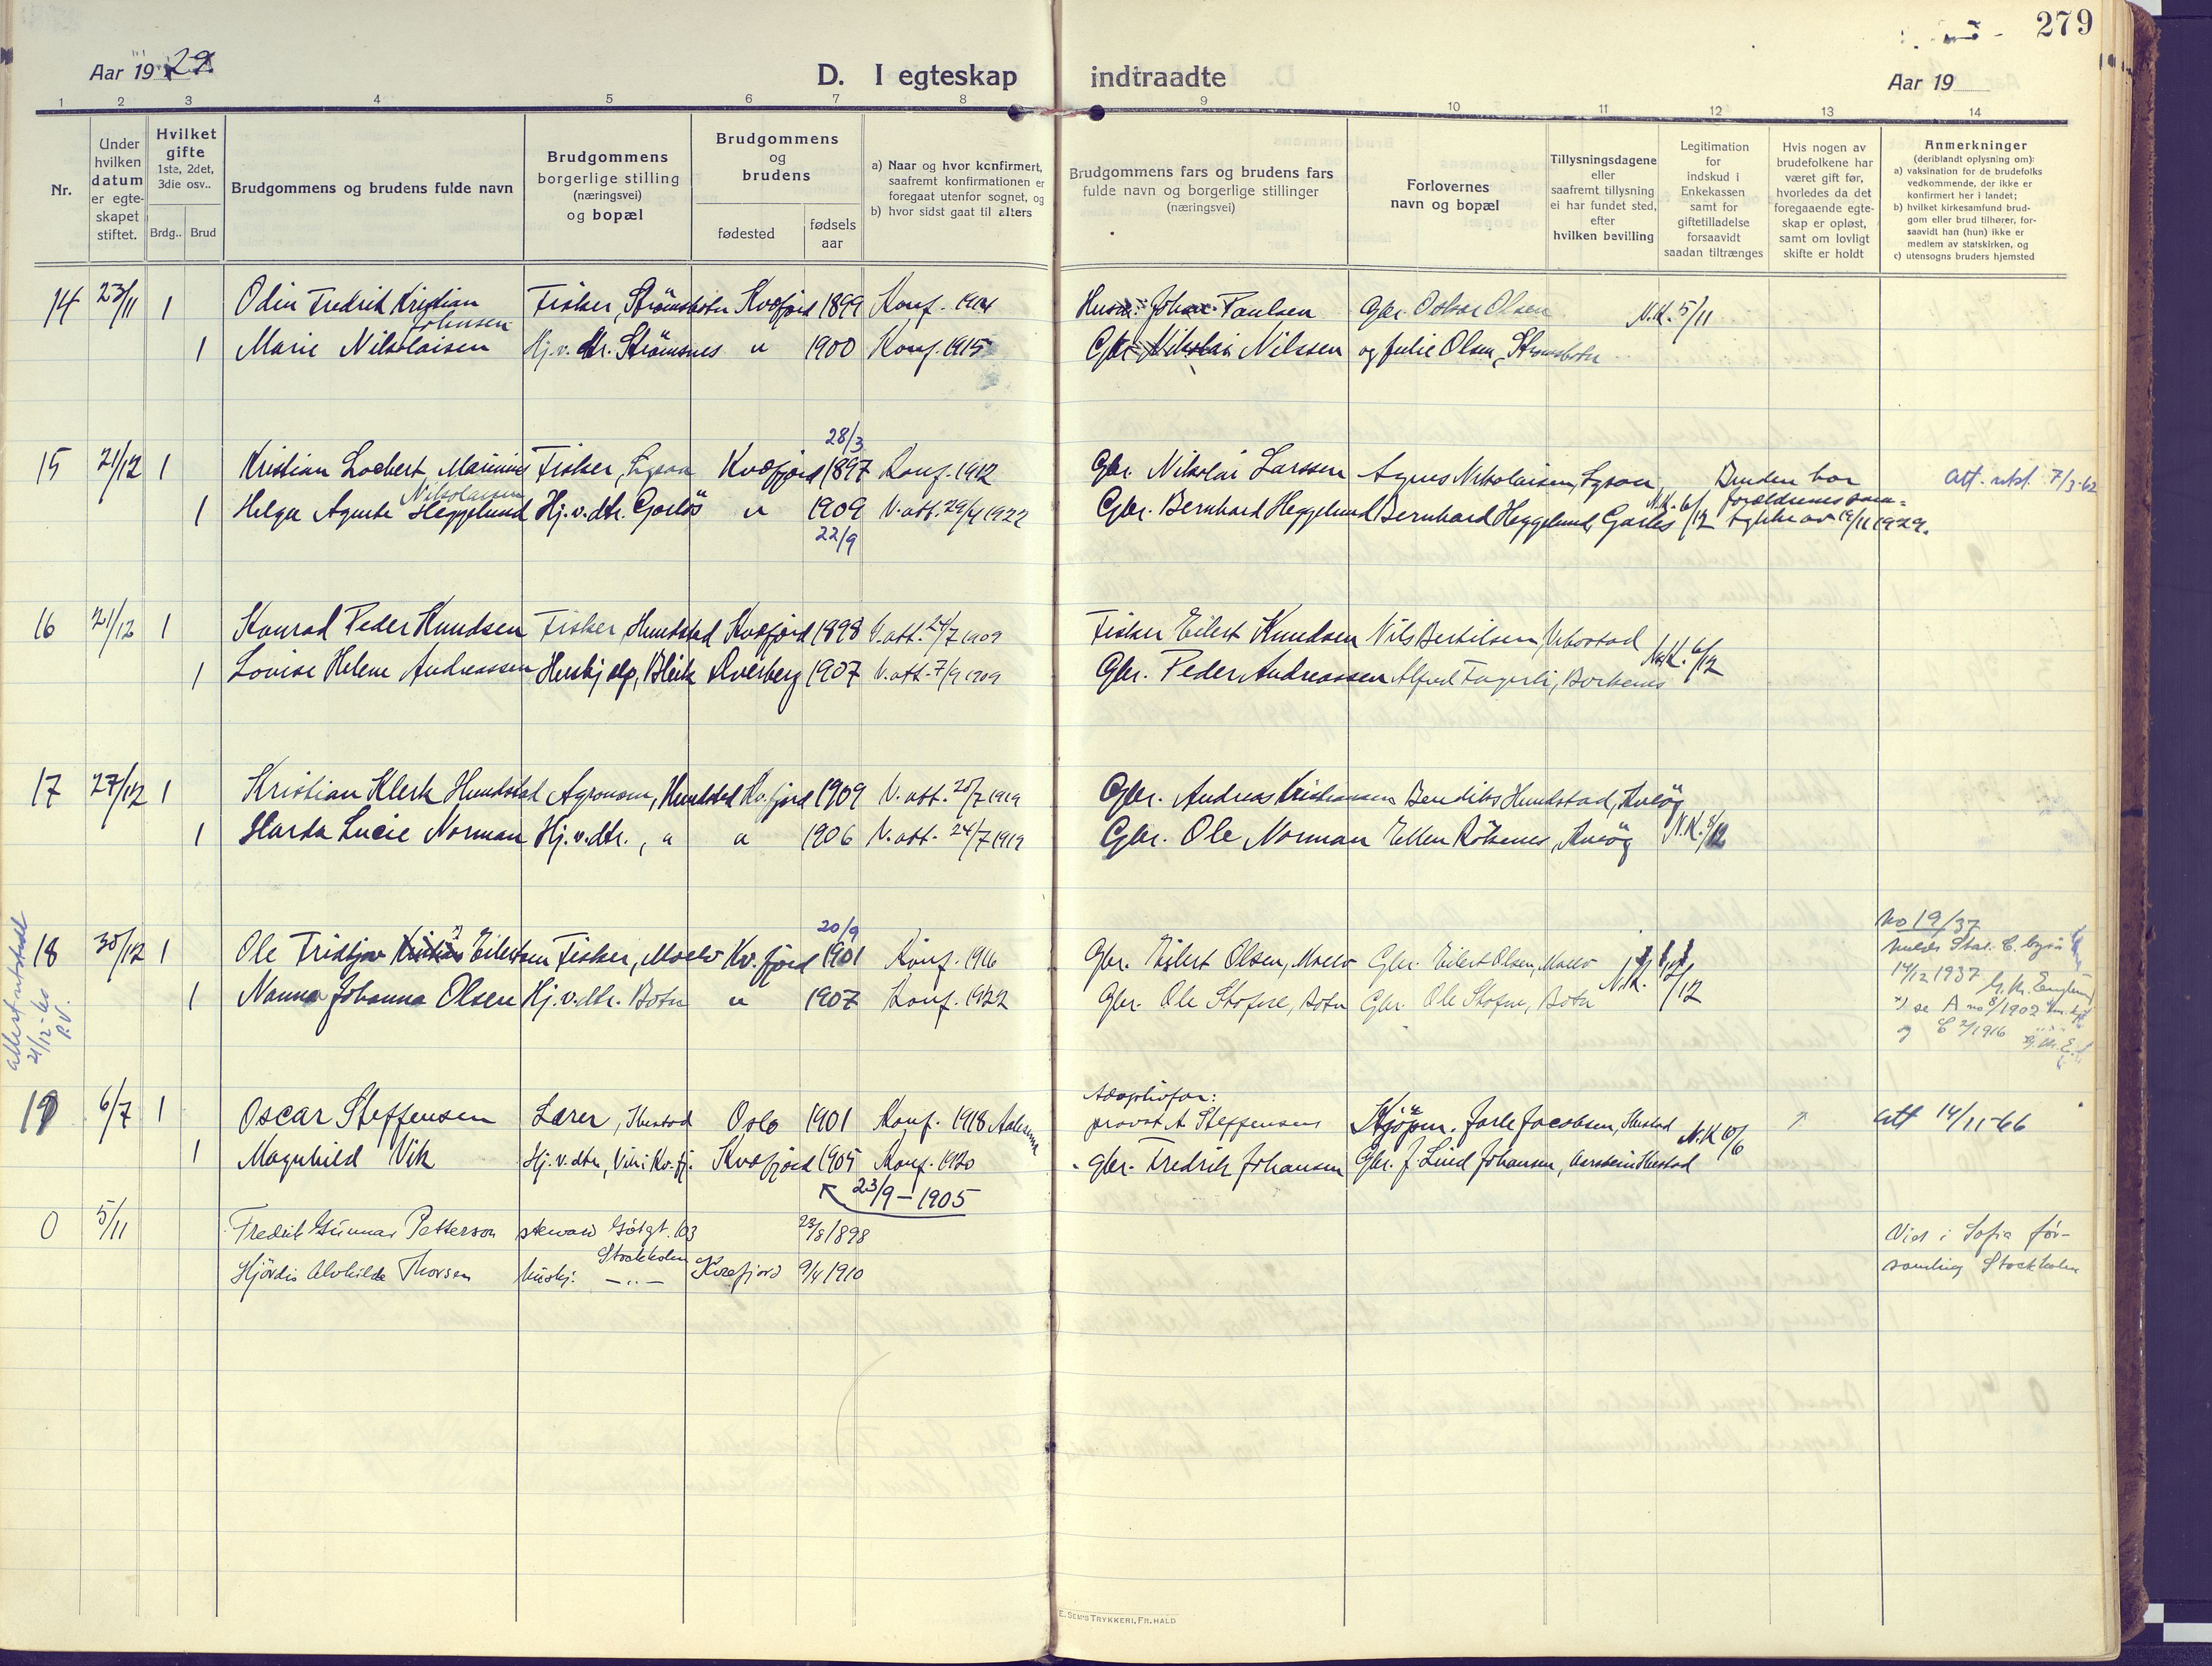 279
Aar 1929.
D. I egteskap indtraadte
Aar 19
1 2 3 4 5 6 7 8 9 10 11 12 13 14
Nr.
Under hvilken datum er egteskapet stiftet.
Hvilket gifte 1ste, 2det, 3die osv..
Brdg.. Brud
Brudgommens og brudens fulde navn
Brudgommens borgerlige stilling (næringsvei) og bopæl
Brudgommens og brudens
fødested
fødsels aar
a) Naar og hvor konfirmert, saafremt konfirmationen er foregaat utenfor sognet, og
b) hvor sidst gaat til alters
Brudgommens fars og brudens fars fulde navn og borgerlige stillinger (næringsvei)
Forlovernes navn og bopæl
Tillysningsdagene eller saafremt tillysning ei har fundet sted, efter hvilken bevilling
Legitimation for indskud i Enkekassen samt for giftetilladelse forsaavidt saadan tiltrænges
Hvis nogen av brudefolkene har været gift før, hvorledes da det foregaaende egteskap er opløst, samt om lovligt skifte er holdt
Anmerkninger (deriblandt oplysning om):
a) vaksination for de brudefolks vedkommende, der ikke er konfirmert her i landet;
b) hvilket kirkesamfund brudgom eller brud tilhører, forsaavidt han (hun) ikke er medlem av statskirken, og
c) utensogns bruders hjemsted
14 23/11 1 Odin Fredrik Kristian Johnsen Fisker, Strömsbotn Kvæfjord 1899 Konf. 1914 Johan Paulsen Gbr. Oskar Olsen N.K. 5/11
1 Marie Nikolaisen Hj.v. dtr. Strömsnes " 1900 Konf. 1915 Gbr. Nikolai Nilssen og Julie Olsen, Strömsbotn
28/3
15 21/12 1 Kristian Lockert Marinius Nikolaisen Fisker, Kvæfjord 1897 Konf. 1912 Gbr. Nikolai Larssen Agnes Nikolaisen, Bruden har forældrenes sam- att. utst. 7/3-62
1 Helga Agnete Heggelund Hj.v.dtr. Gorlös " 1909 V.att. 29/4 1922 Gbr. Bernhard Heggelund Bernhard Heggelund, N.K. 6/12 tykke av 19/11 1929.
22/9
16 21/12 1 Konrad Peder Knudsen Fisker, Hundstad Kvæfjord 1898 V.att. 24/7 1909 Fisker Eilert Knudsen Nils Bertilsen, N.K. 6/12
1 Lovise Helene Andreassen Hushjelp, Bleik 1907 V.att. 7/9 1909 Gbr. Peder Andreassen Alfred Fagerli, Borkenes
17 27/12 1 Kristian Klerk Hundstad Agronom, Hundstad Kv.fjord 1909 V.att. 1919 Gbr. Andreas Kristiansen Bendiks Hundstad, Kveöy
1 Harda Lucie Norman Hj.v.dtr., " " 1906 V.att. 24/7 1919 Gbr. Ole Norman Ellen Rökenes, Kveöy N.K. 8/12
20/9
18 30/12 1 Ole Fridtjov Kristian x) Eilertsen Fisker, Moelv Kv.fjord 1901 Konf. 1916 Gbr. Eilert Olsen, Moelv Gbr. Eilert Olsen, Moelv
1 Nanna Johanna Olsen Hj.v.dtr. Botn " 1907 Konf. 1922 Gbr. Ole Olsen, Botn Botn N.K. /12
attest utstedt 21/12-60 P.V.
No 19/37
meldt Stat. C. byrå
14/12 1937
x) se A no 8/1902
og C 2/1916
19 6/7 1 Oscar Steffensen Lærer, Oslo 1901 Konf. 1918 Adoptivfar: provst A Steffensen Kjöpm. Jarle Jacobsen, att 14/11-66
1 Magnhild Vik Hj.v.dtr, Vik i Kv.fj. Kvæfjord 1905 Konf. 1920 gbr. Fredrik Johansen Gbr. J. Lind Johansen, N.K. /6
23/9 - 1905
0 5/11 Fredrik Gunnar Petterson steward Götgt. 103 Stockholm 23/8 1898 Vied i Sofia för-
Hjördis Alvhilde Thorsen hushj. -"- Kvæfjord 9/4 1910 samling Stockholm
E. SEM'S TRYKKERI, FR.HALD